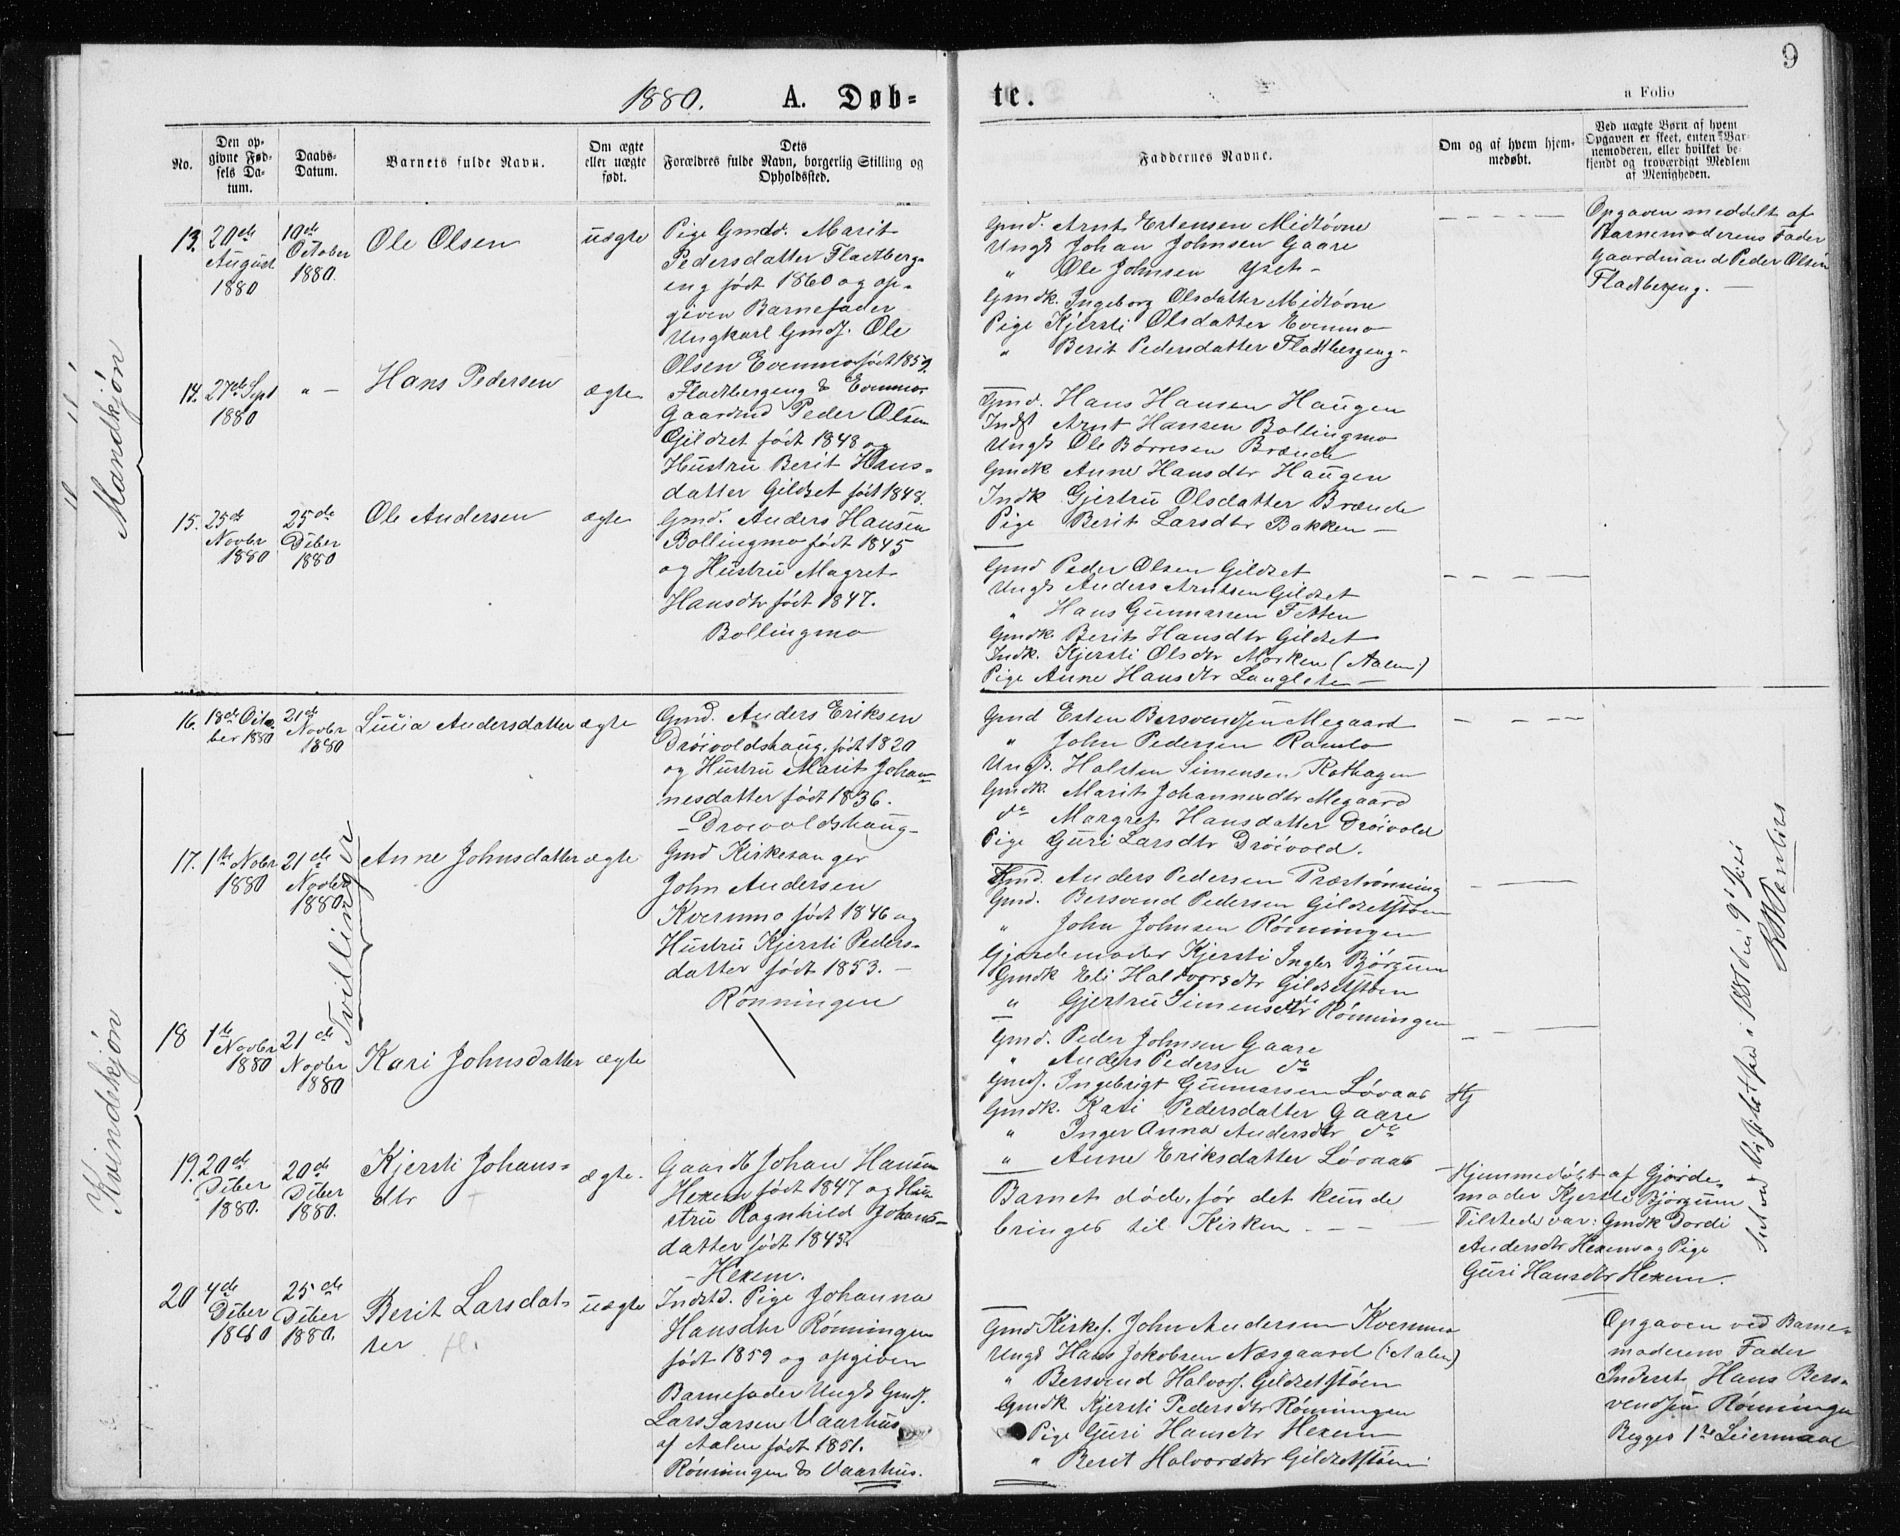 9
1880. A. Døb=
te.
a Folio
No.
Den op-
givne Fød-
sels Da-
tum.
Daabs-
Datum.
Barnets fulde Navn.
Om ægte
eller uægte
født.
Dets
Forældres fulde Navn, borgerlig Stilling og
Opholdssted.
Faddernes Navne.
Om og af hvem hjem-
medøbt.
Ved uægte Børn af hvem
Opgaven er skeet, enten Bar-
nemoderen, eller hvilket be-
kjendt og troværdigt Medlem
af Menigheden.
Mandkjøn
13. 20de
August
1880
10de
October
1880.
Ole Olsen
uægte
Pige Gmdd. Marit
Pedersdatter Fladtberg-
eng født 1860 og op-
given Barnefader
Ungkarl Gmds. Ole
Olsen Evenmo født 1859.
Fladtbergeng & Evenmo
Gmd. Arnt Estensen Midtøvne
Ungk Johan Johnsen Gaare
" Ole Johnsen Yset -
Gmdk. Ingeborg Olsdatter Midtøvne
Pige Kjersti Olsdatter Evenmo
" Berit Pedersdatter Fladtbergeng -
Opgaven meddelt af
Barnemoderens Fader
Gaardmand Peder Olsen
Fladtbergeng. —
14. 27de Sept
1880
" —
Hans Pedersen
ægte
Gaardmd Peder Olsen
Gildset født 1848 og
Hustru Berit Hans-
datter Gildset født 1848.
Gmd. Hans Hansen Haugen
Indst Arnt Hansen Bollingmo
Ungk Ole Børresen Brænde
Gmdk Anne Hansdtr Haugen
Indk Gjertru Olsdatter Brænde
Pige Berit Larsdtr Bakken —
15. 25de
Novbr
1880
25de
Dcber
1880
Ole Andersen
ægte
Gmd. Anders Hansen
Bollingmo født 1845
og Hustru Magret
Hansdtr født 1847.
Bollingmo
Gmd Peder Olsen Gildset
Ungk Anders Arntsen Gildset
" Hans Gunnarsen Fetten
Gmdk. Berit Hansdtr Gildset
Indk. Kjersti Olsdtr Morken (Aalen)
Pige Anne Hansdtr Langleten —
Kvindekjøn
16. 18de Octo
ber 1880
21de
Novbr
1880
Lucia Andersdatter
ægte
Gmd. Anders Eriksen
Drøivoldshaug født 1820
og Hustru Marit Johan-
nesdatter født 1836.
— Drøivoldshaug —
Gmd Esten Bersvendsen Megaard
" John Pedersen Ramlo
Ungk. Halsten Simensen Rothagen
Gmdk. Marit Johannesdtr Megaard
do Margret Hansdatter Drøivold
Pige Guri Larsdtr Drøivold.
Tvillinger
17. 1te Novbr
1880
21de
Novbr
1880.
Anne Johnsdatter
ægte
Gmd Kirkesanger
John Andersen
Kvernmo født 1846 og
Hustru Kjersti Peders-
datter født 1853. —
Rønningen
Gmd. Anders Pedersen Præstrønning
Gmd. Bersvend Pedersen Gildsetstøen
" John Johnsen Rønningen
Gjordemoder Kjersti Ingbr Bjørgum
Gmdk Eli Halvorsdtr Gildsetstøen
" Gjertru Simensdtr Rønningen
18 1te
Novbr
1880
21de
Novbr
1880
Kari Johnsdatter
ægte
Gmd. Peder Johnsen Gaare
" Anders Pedersen do
Gmds. Ingebrigt Gunnarsen Løvaas
Gmdk. Kari Pedersdatter Gaare
" Inger Anna Andersdtr do
" Anne Eriksdatter Løvaas
Hj
19. 20de
Dcber
1880.
20de
Dcber
1880.
Kjersti Johans-
dtr
ægte.
Gaardb Johan Hansen
Hexem født 1847 og Hu-
stru Ragnhild Johans-
datter født 1845.
— Hexem.
Barnet døde, før det kunde
bringes til Kirken. — — —
Hjemmedøbt af Gjorde-
moder Kjersti Bjørgum
Tilstede var: Gmdk Dordi
Andersdtr Hexem og Pige
Guri Hansdtr Hexem.
20 4de
Dcber
1880
25de
Dcber
1880.
Berit Larsdat-
ter
uægte
Indstd. Pige Johanna
Hansdtr Rønningen
født 1859 og opgiven
Barnefader Ungk Gmds.
Lars Larsen Vaarhus
af Aalen født 1851.
Rønningen & Vaarhus.
Gmd Kirkes. John Andersen Kvernmo
Ungk Hans Jakobsen Næsgaard (Aalen)
" Bersvend Halvors. Gildsetstøen
Gmdk Kjersti Pedersdtr Rønningen
Pige Guri Hansdtr Hexem
" Berit Halvorsdtr Gildsetstøen
Opgaven ved Barne-
moderens Fader
Inderst Hans Bers-
vendsen Rønningen
Begges 1te Leiermaal
Set ved Visitatsen i 1881 den 9de Juli